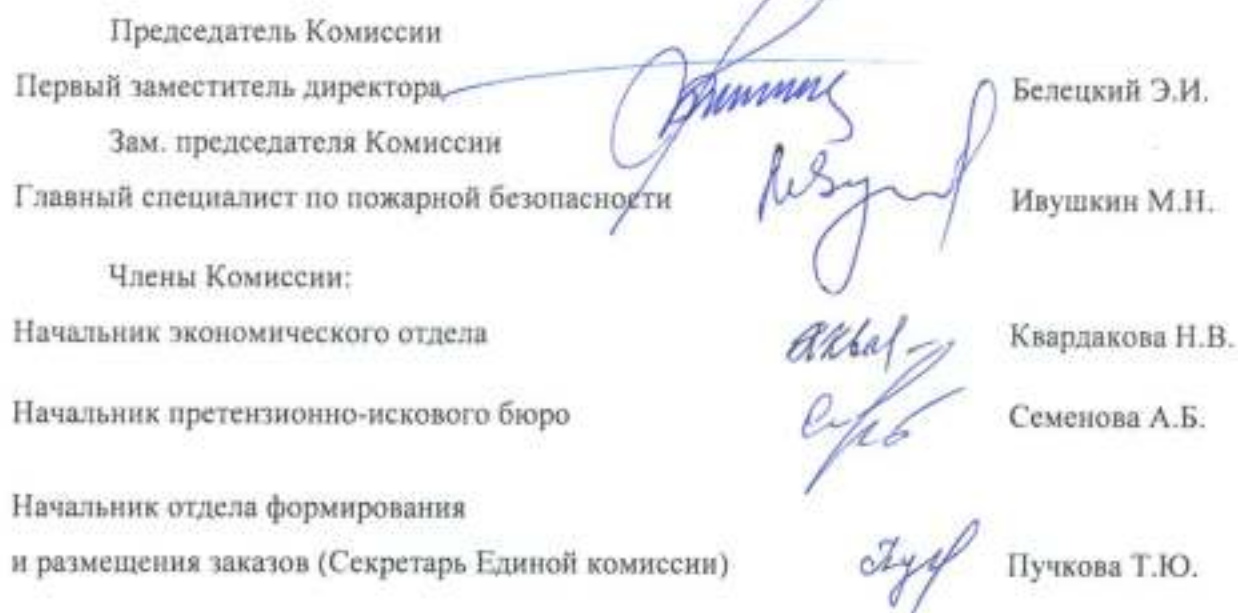 Председатель Комиссии
Первый заместитель директора Белецкий Э.И.
Зам. председателя Комиссии
Главный специалист по пожарной безопасности Ивушкин М.Н.
Члены Комиссии:
Начальник экономического отдела Квардакова Н.В.
Начальник претензионно-искового бюро Семенова А.Б.
Начальник отдела формирования
и размещения заказов (Секретарь Единой комиссии) Пучкова Т.Ю.